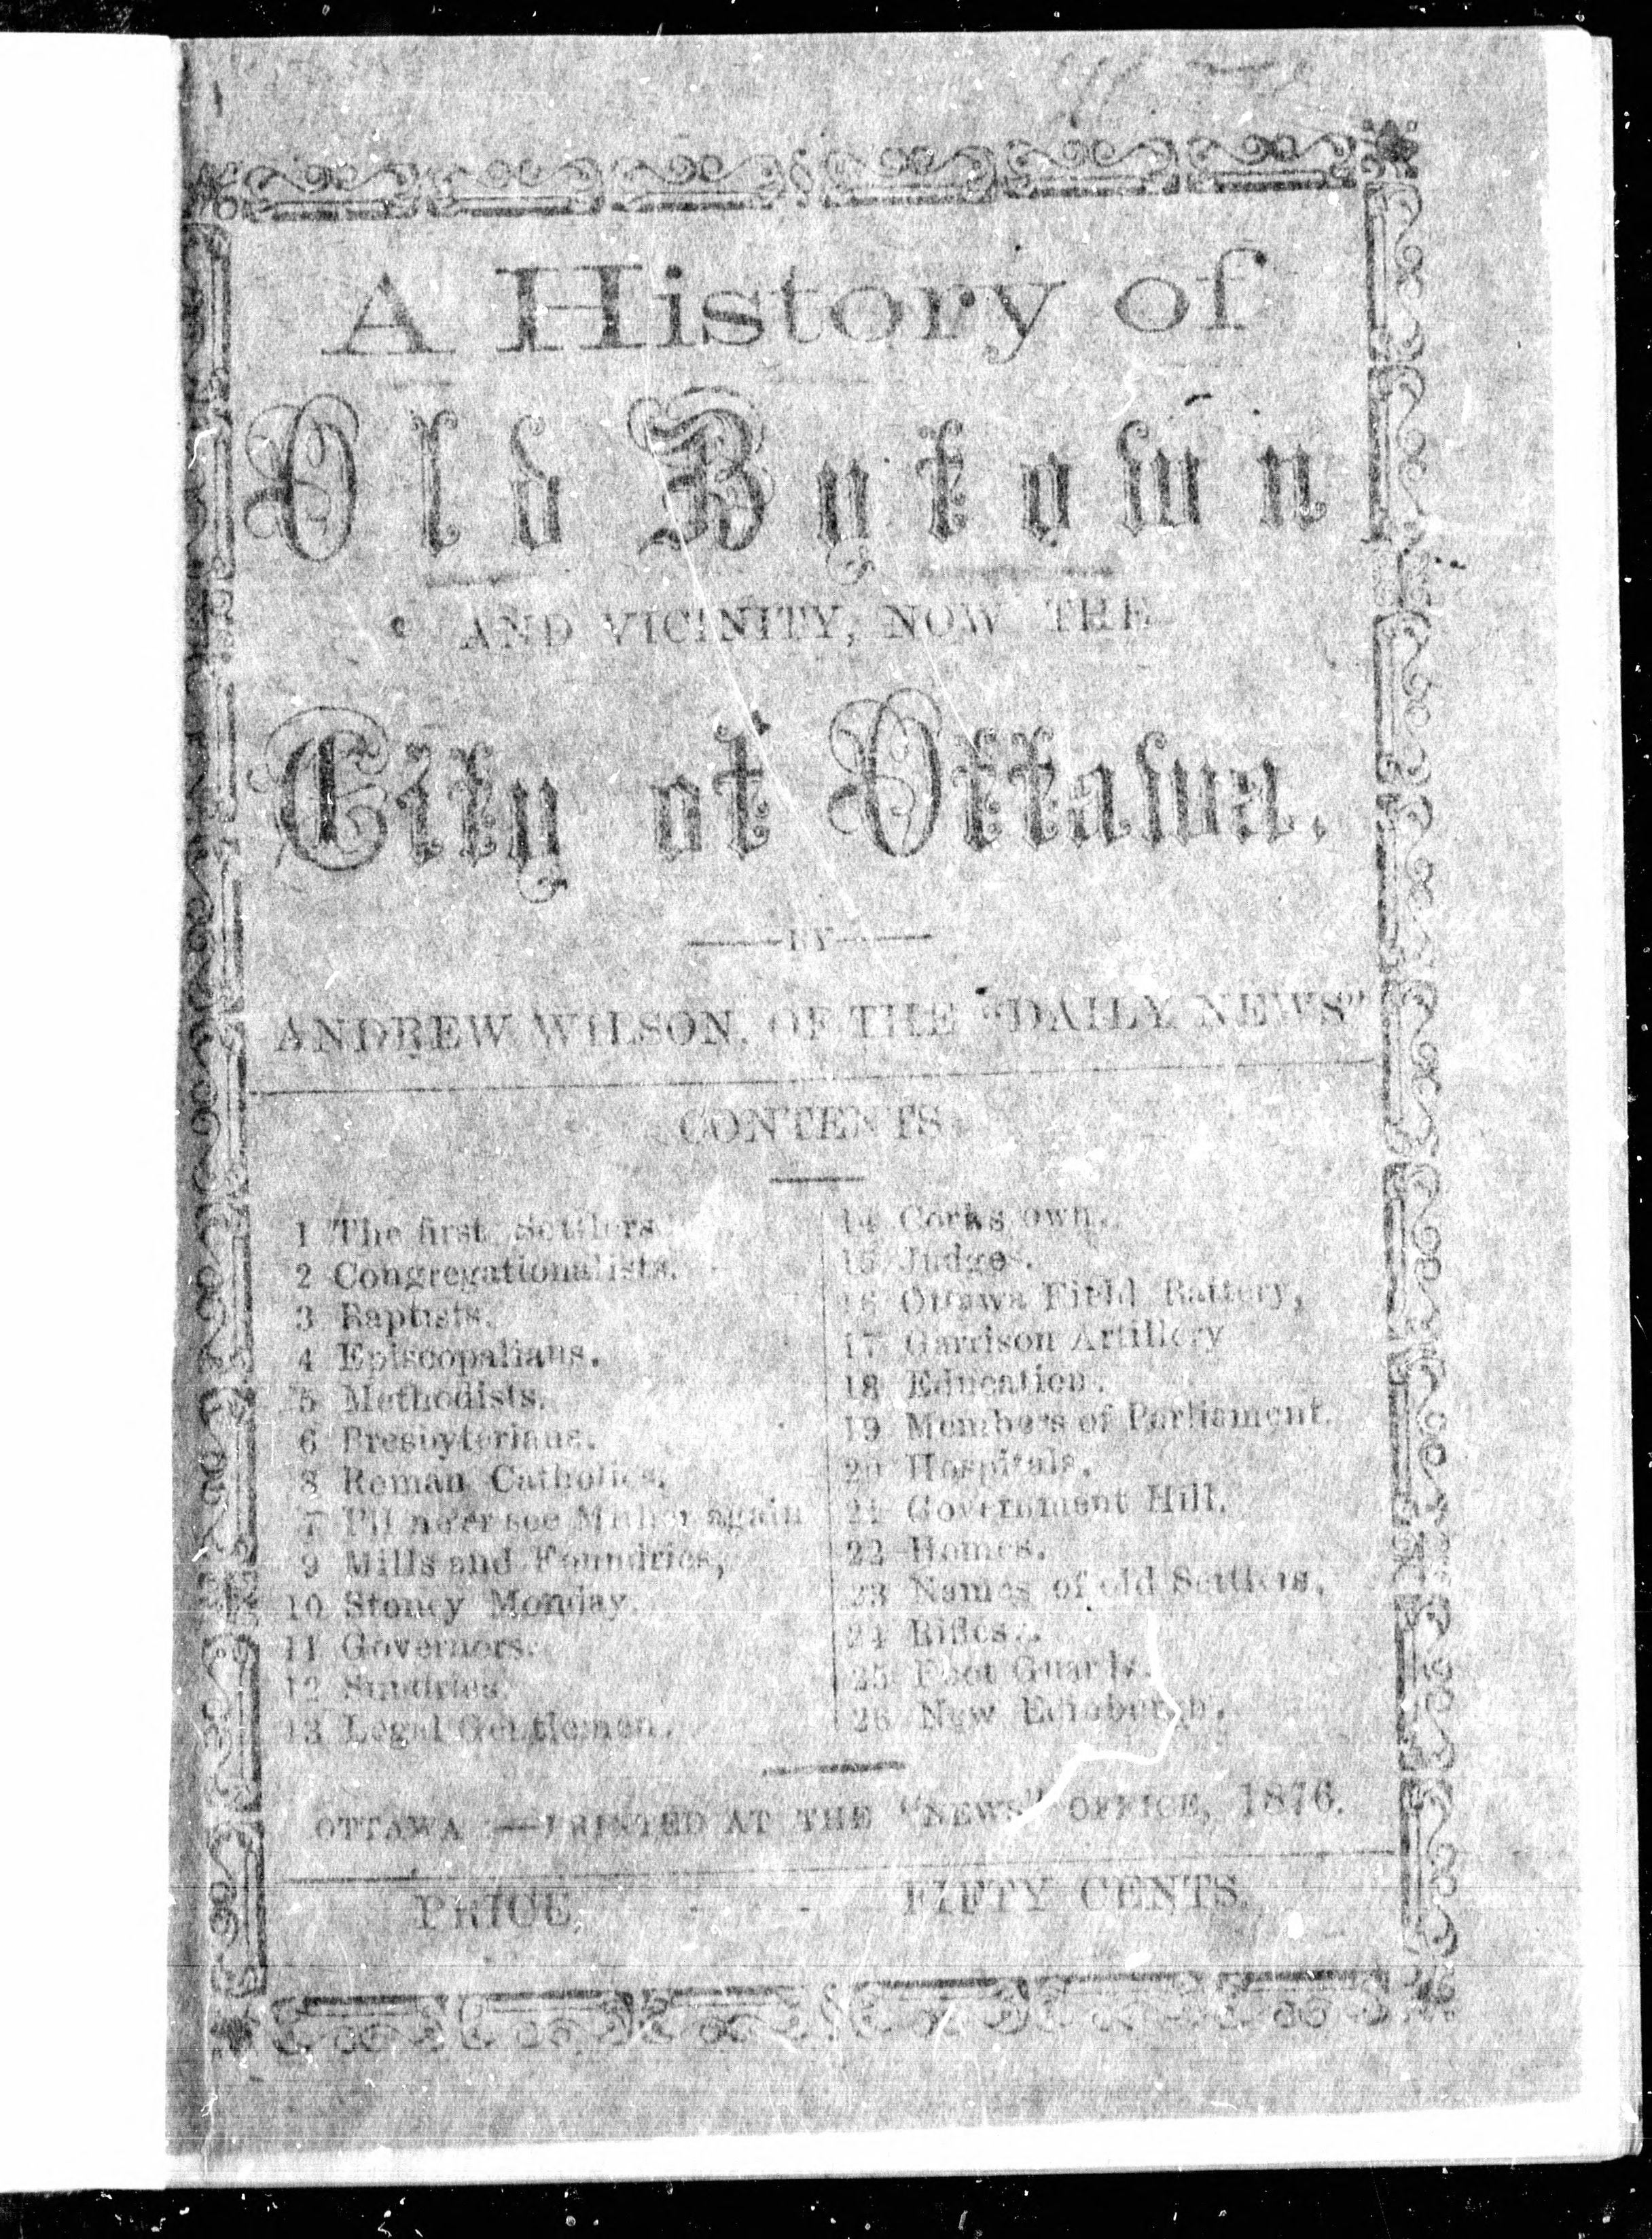 A History of
Old Bytown
AND VICINITY, NOW THE
City of Ottawa.
BY
ANDREW WILSON, OF THE "DAILY NEWS"
CONTENTS
1 The first Settlers
2 Congregationalists.
3 Baptists.
4 Episcopalians.
5 Methodists.
6 Presbyterians.
8 Roman Catholics.
7 I'll ne'er see Mither again
9 Mills and Foundries,
10 Stoney Monday.
11 Governors.
12 Sundries.
13 Legal Gentlemen.
14 Corkstown.
15 Judges.
16 Ottawa Field Battery,
17 Garrison Artillery
18 Education.
19 Members of Parliament.
20 Hospitals.
21 Government Hill.
22 Homes.
23 Names of old Settlers.
24 Rifles.
25 Foot Guards.
26 New Edinburgh.
OTTAWA :—PRINTED AT THE "NEWS" OFFICE, 1876.
PRICE, - - FIFTY CENTS.